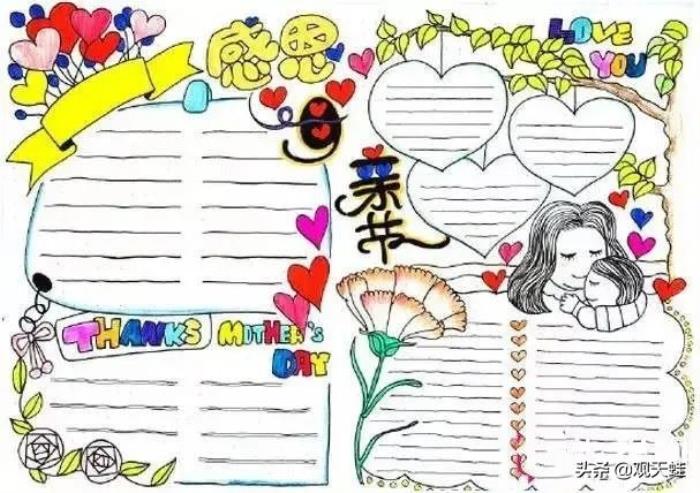 感恩
母
亲
节
LOVE
YOU
THANKS MOTHER'S
DAY
头条 @观天蛙